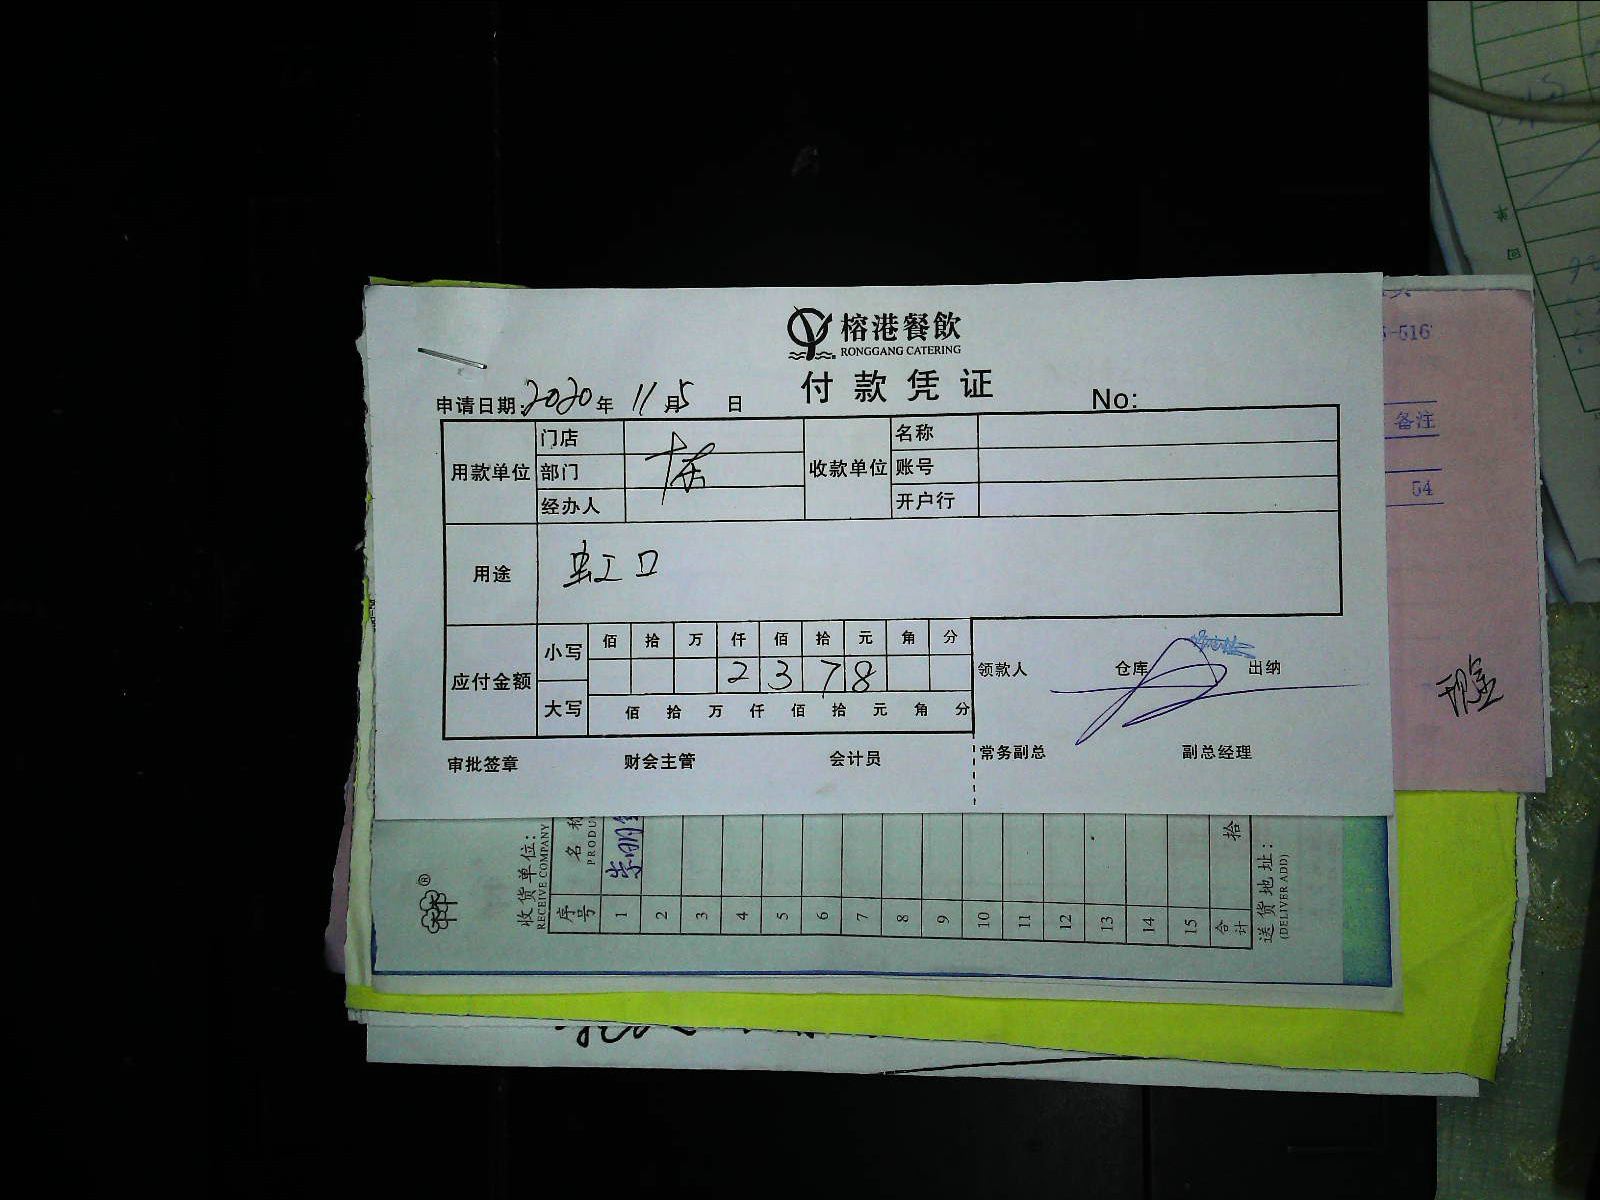 榕港餐飲
RONGGANG CATERING
付款凭证
申请日期: 2020年 11月5日 No:
用款单位 门店 收款单位 名称
部门 账号
经办人 开户行
用途 虹口
应付金额 小写 佰 拾 万 仟 佰 拾 元 角 分
2 3 7 8
大写 佰 拾 万 仟 佰 拾 元 角 分
领款人 仓库 出纳
审批签章 财会主管 会计员 常务副总 副总经理
-516
备注
54
现金
收货单位:
RECEIVE COMPANY
序号 名称
PRODU
1
2
3
4
5
6
7
8
9
10
11
12
13
14
15
合计 拾
送货地址:
(DELIVER ADD)